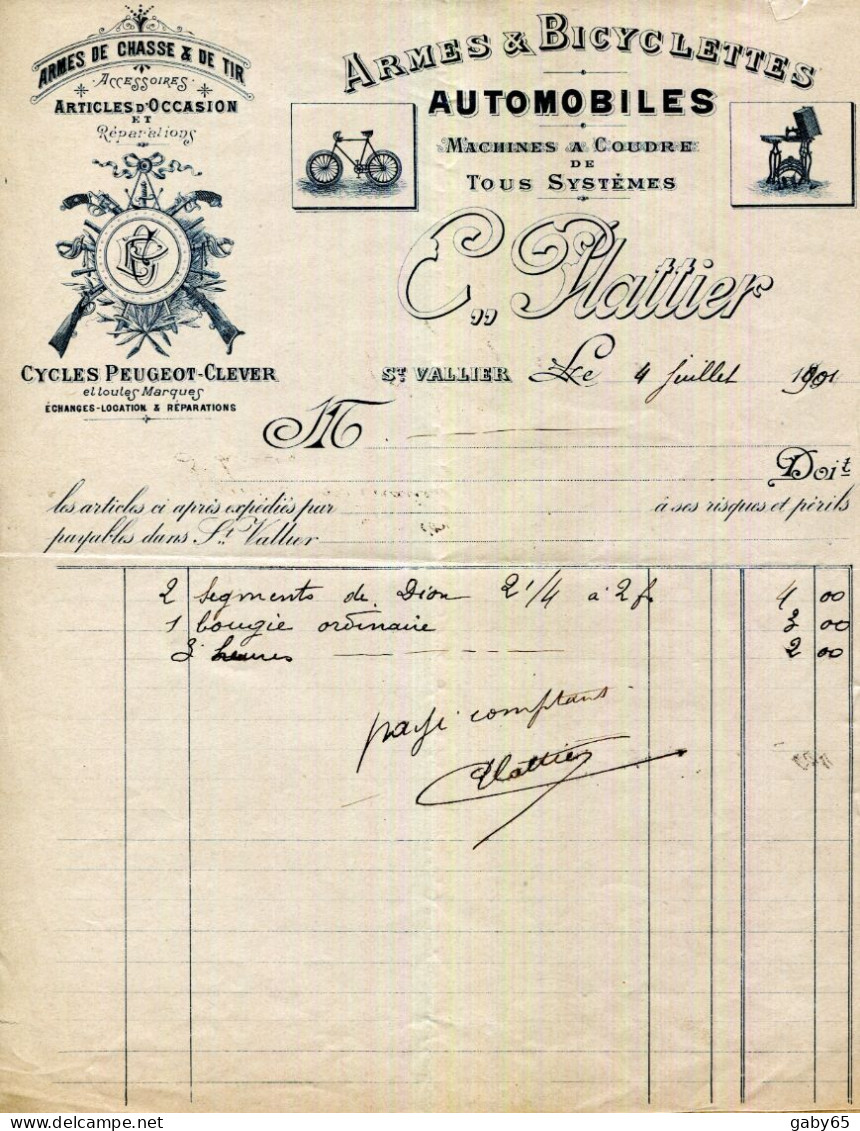 ARMES DE CHASSE & DE TIR
ACCESSOIRES
ARTICLES D'OCCASION
ET
Réparations
CYCLES PEUGEOT-CLEVER
et toutes Marques
ÉCHANGES-LOCATION & RÉPARATIONS
ARMES & BICYCLETTES
AUTOMOBILES
MACHINES A COUDRE
DE
TOUS SYSTÈMES
E. Plattier
ST VALLIER Le 4 juillet 1901
M
Doit
les articles ci après expédiés par à ses risques et périls
payables dans St Vallier
2 segments de Dion 2 1/4 à 2 f 4 00
1 bougie ordinaire 3 00
3 heures 2 00
payé comptant
Plattier
delcampe.net
gaby65